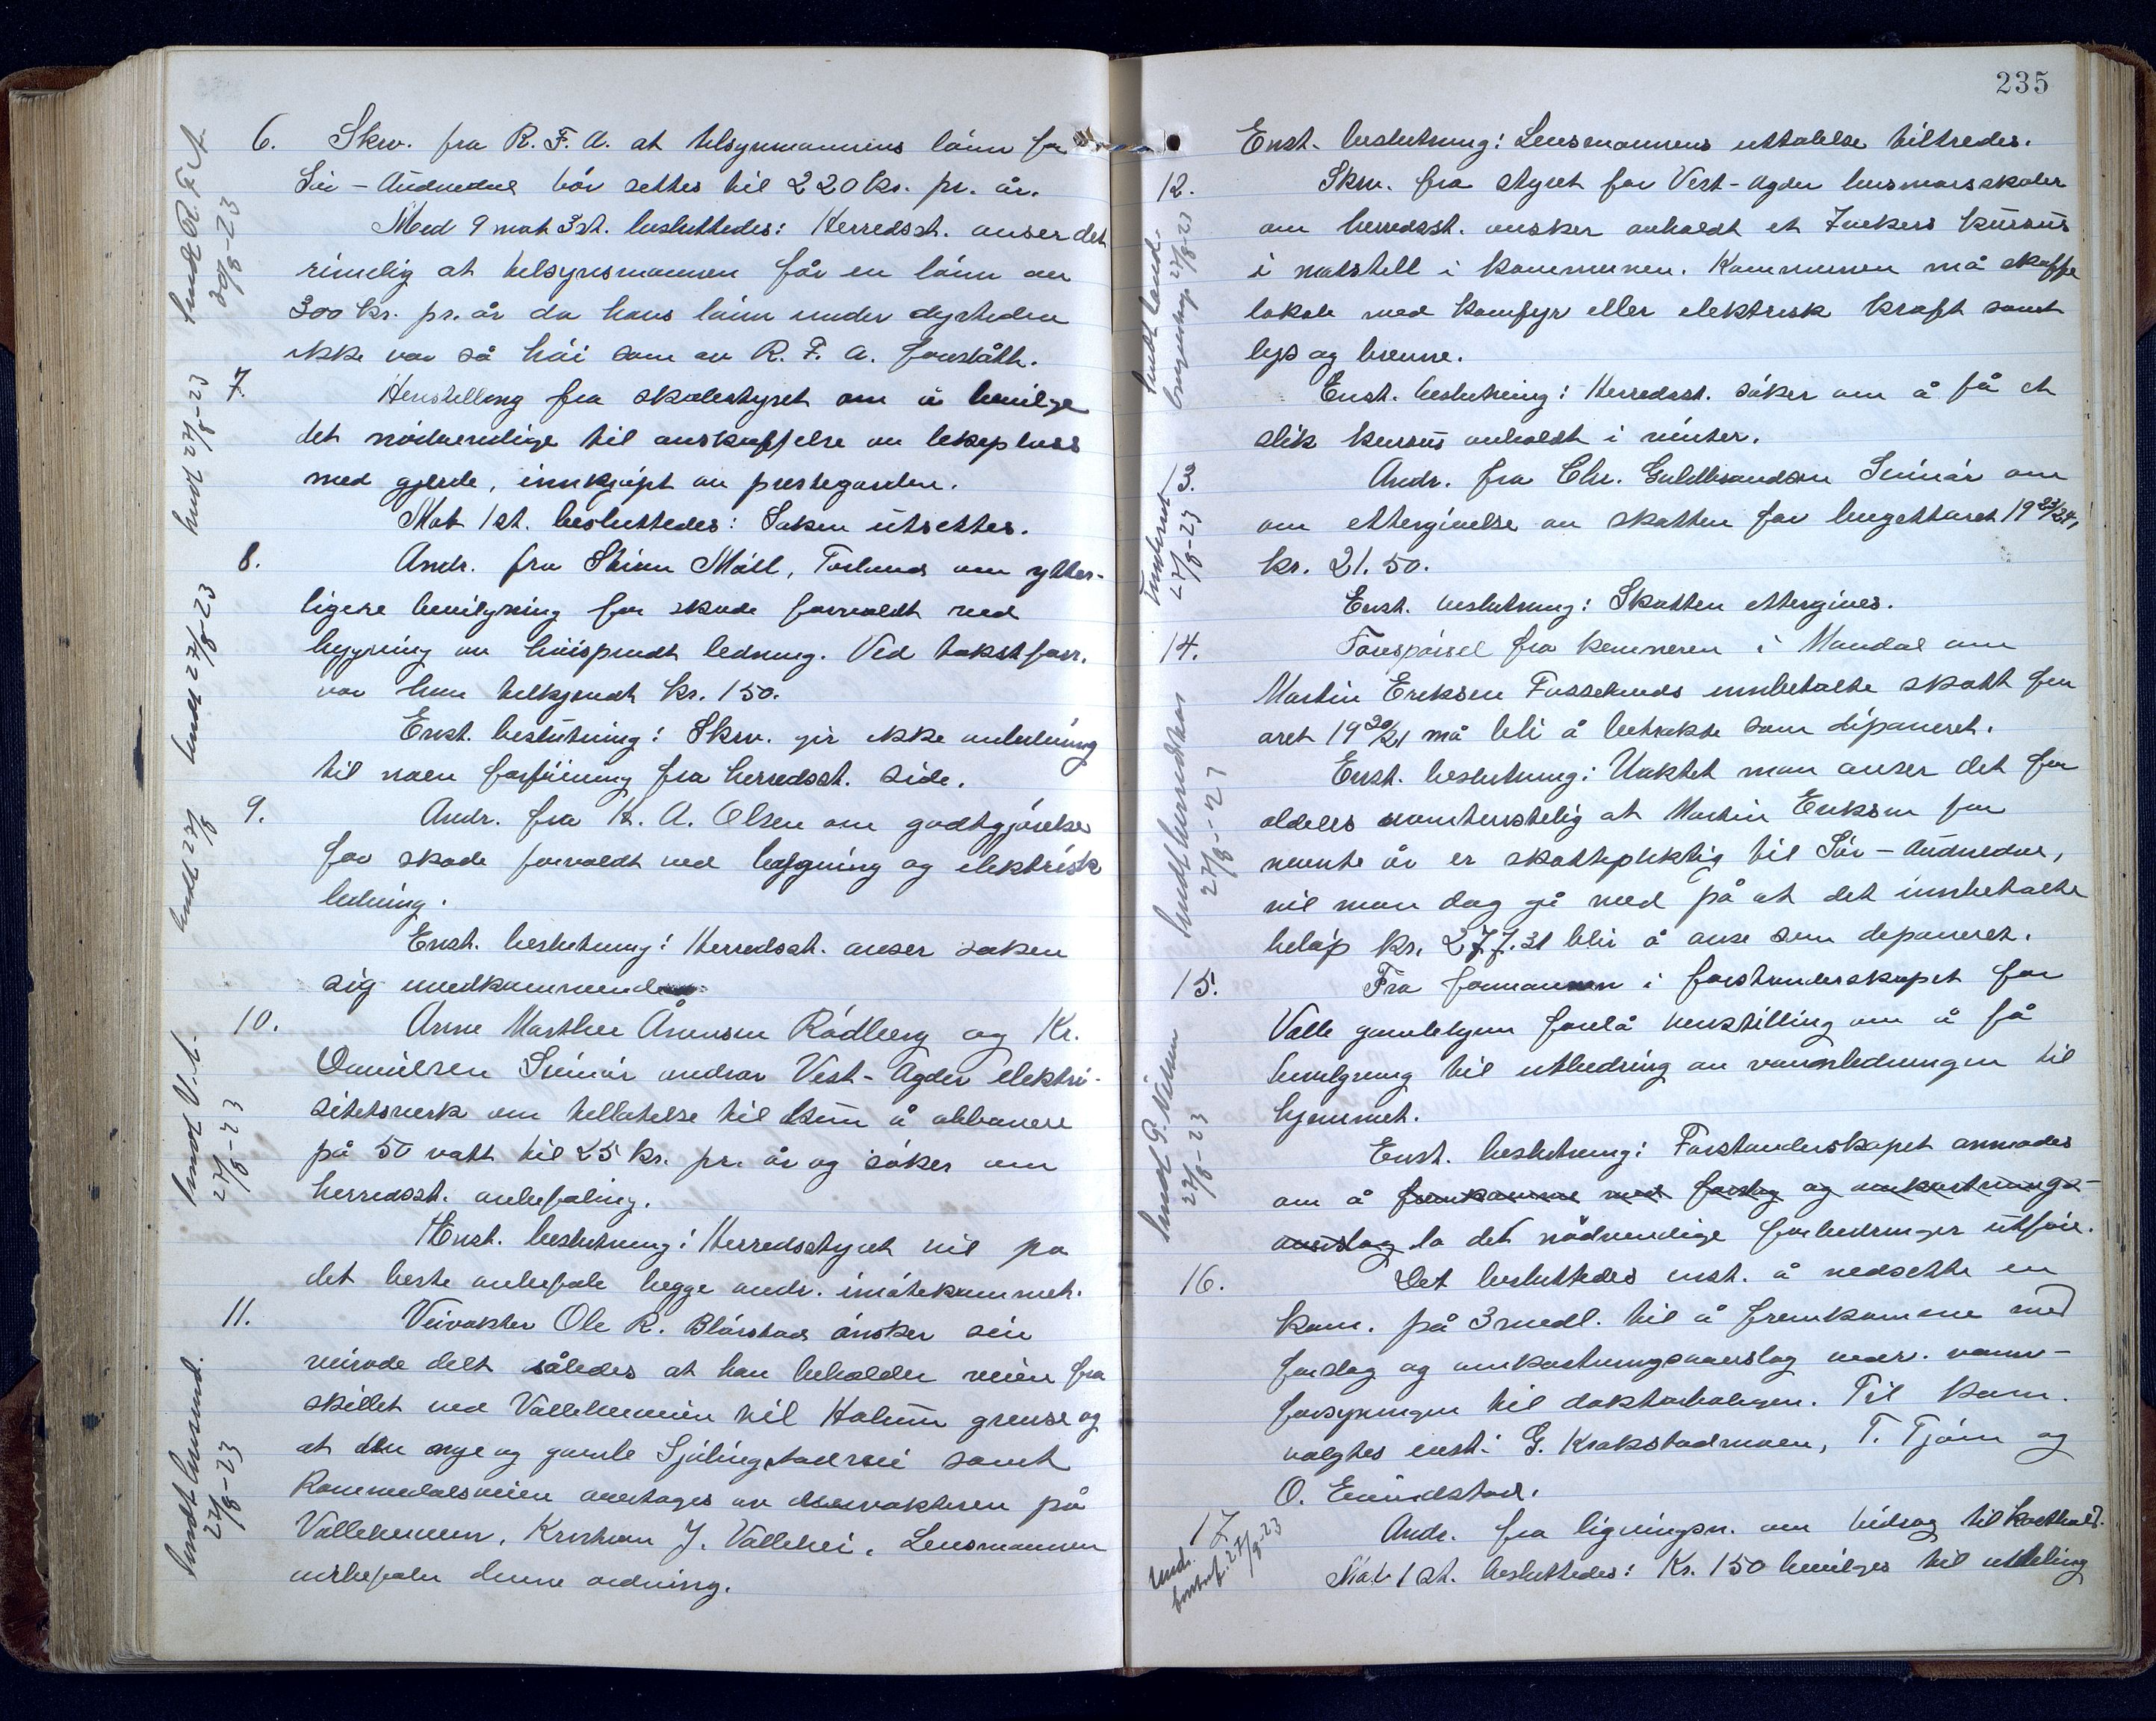 6. Skriv. fra R. F. A. at tilsynmannens lönn for
Sör-Audnedal bör settes til 220 kr. pr. år.
Med 9 mot 3 st. besluttedes: Herredsst. anser det
rimelig at tilsynsmannen får en lönn av
300 kr. pr. år da hans lönn under dyrtiden
ikke var så höi som av R. F. A. forstått.
sendt R. F. A.
30/8-23
7. Henstilling fra skolestyret om å bevilge
det nödvendige til anskaffelse av lekeplass
med gjerde, innkjöpt av prestegarden.
Mot 1 st. besluttedes: Saken utsettes.
sendt 27/8-23
8. Andr. fra Stinn Möll, Torlund om ytter-
ligere bevilgning for skade forvoldt ved
bygning av höispendt ledning. Ved takstforr.
var hun tilkjendt kr. 150.
Enst. beslutning: Skriv. gir ikke anledning
til noen forföining fra herredsst. side.
sendt 27/8-23
9. Andr. fra K. A. Olsen om godtgjörelse
for skade forvoldt ved bygning og elektrisk
ledning.
Enst. beslutning: Herredsst. anser saken
sig uvedkommende
sendt 27/8
10. Anne Marthee Åvensen Rödberg og Kr.
Danielsen Svinör andrar Vest-Agder elektri-
sitetsverk om tillatelse til kun å abbonere
på 50 vatt til 25 kr. pr. år og söker om
herredsst. anbefaling.
Enst. beslutning: Herredsstyret vil på
det beste anbefale begge andr. imötekommet.
sendt V.A.
27/8-23
11. Veivokter Ole R. Blörstad önsker sin
veirode delt således at han beholder veien fra
skillet ved Valleheiveien til Holum grense og
at den nye og gamle Sjölingstadvei samt
Rommedalsveien overtages av veivokteren på
Valleheien, Kristian J. Vallehei. Lensmannen
anbefaler denne ordning.
sendt lensmd.
27/8-23
235
Enst. beslutning: Lensmannens uttalelse tiltredes.
12. Skriv. fra styret for Vest-Agder husmorsskoler
om herredsst. önsker avholdt et 7 ukers kursus
i matstell i kommunen. Kommunen må skaffe
lokale med komfyr eller elektrisk kraft samt
lys og brenne.
Enst. beslutning: Herredsst. söker om å få et
slik kursus avholdt i vinter.
27/8-23
3. Andr. fra Chr. Guldbrandsen Svinör om
om ettergivelse av skatten for bugettåret 1923/24,
kr. 21.50.
Enst. beslutning: Skatten ettergives.
27/8-23
14. Forespörsel fra kemneren i Mandal om
Martin Eriksen Fasselands innbetalte skatt for
året 1920/21 må bli å betrakte som deponeret.
Enst. beslutning: Uaktet man anser det for
aldeles uomtvistelig at Martin Eriksen for
nevnte år er skattepliktig til Sör-Audnedal,
vil man dog gå med på at det innbetalte
belöp kr. 277.31 blir å anse som deponeret.
27/8-23
15. Fra formannen i forstanderskapet for
Valle gamlehjem forelå henstilling om å få
bevilgning til utbedring av vannledningen til
hjemmet.
Enst. beslutning: Forstanderskapet anmodes
om å fremkomme med forslag og omkostnings-
overslag la det nödvendige forbedringer utföre.
27/8-23
16. Det besluttedes enst. å nedsette en
kom. på 3 medl. til å fremkomme med
forslag og omkostningsoverslag vedr. vann-
forsyningen til doktorboligen. Til kom.
valgtes enst: G. Krokstadmoen, T. Tjörn og
O. Enindstad.
17. Andr. fra ligningsn. om bidrag til kosthold.
Mot 1 st. besluttedes: Kr. 150 bevilges til utdeling
27/8-23